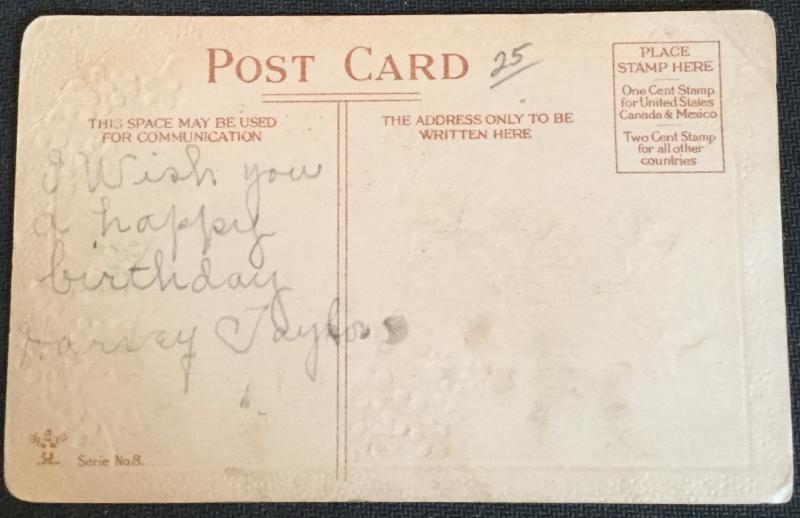 POST CARD
25
PLACE
STAMP HERE
One Cent Stamp
for United States
Canada & Mexico
Two Cent Stamp
for all other
countries
THIS SPACE MAY BE USED
FOR COMMUNICATION
THE ADDRESS ONLY TO BE
WRITTEN HERE
I Wish you
a happy
birthday
Harvey Taylor
Serie No.8.